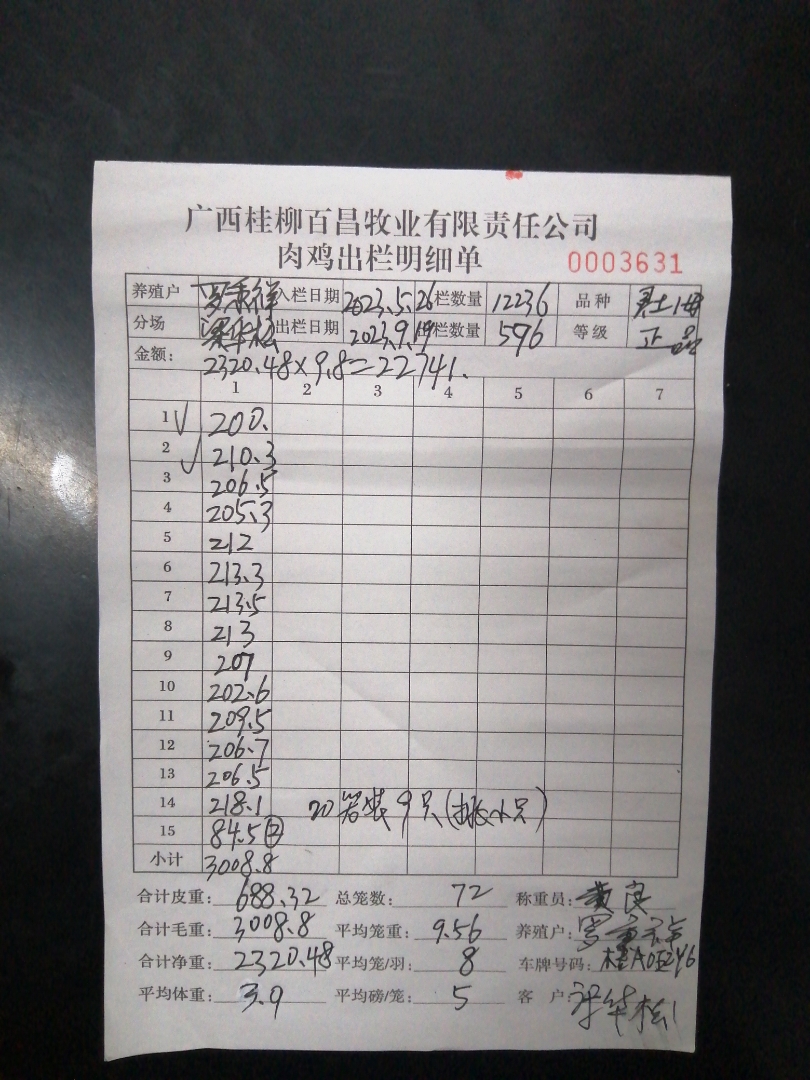 广西桂柳百昌牧业有限责任公司
肉鸡出栏明细单 0003631
养殖户 入栏日期 2023.5.26 栏数量 12236 品种
分场 梁华松 出栏日期 2023.9.19 出栏数量 596 等级 正品
金额: 2320.48×9.8=22741.
1 2 3 4 5 6 7
1 √ 200.
2 √ 210.3
3 206.5
4 205.3
5 212
6 213.3
7 213.5
8 213
9 207
10 202.6
11 209.5
12 206.7
13 206.5
14 218.1 20 装9只
15 84.5 ②
小计 3008.8
合计皮重: 688.32 总笼数: 72 称重员: 黄良
合计毛重: 3008.8 平均笼重: 9.56 养殖户:
合计净重: 2320.48 平均笼/羽: 8 车牌号码:
平均体重: 3.9 平均磅/笼: 5 客户: 梁华松